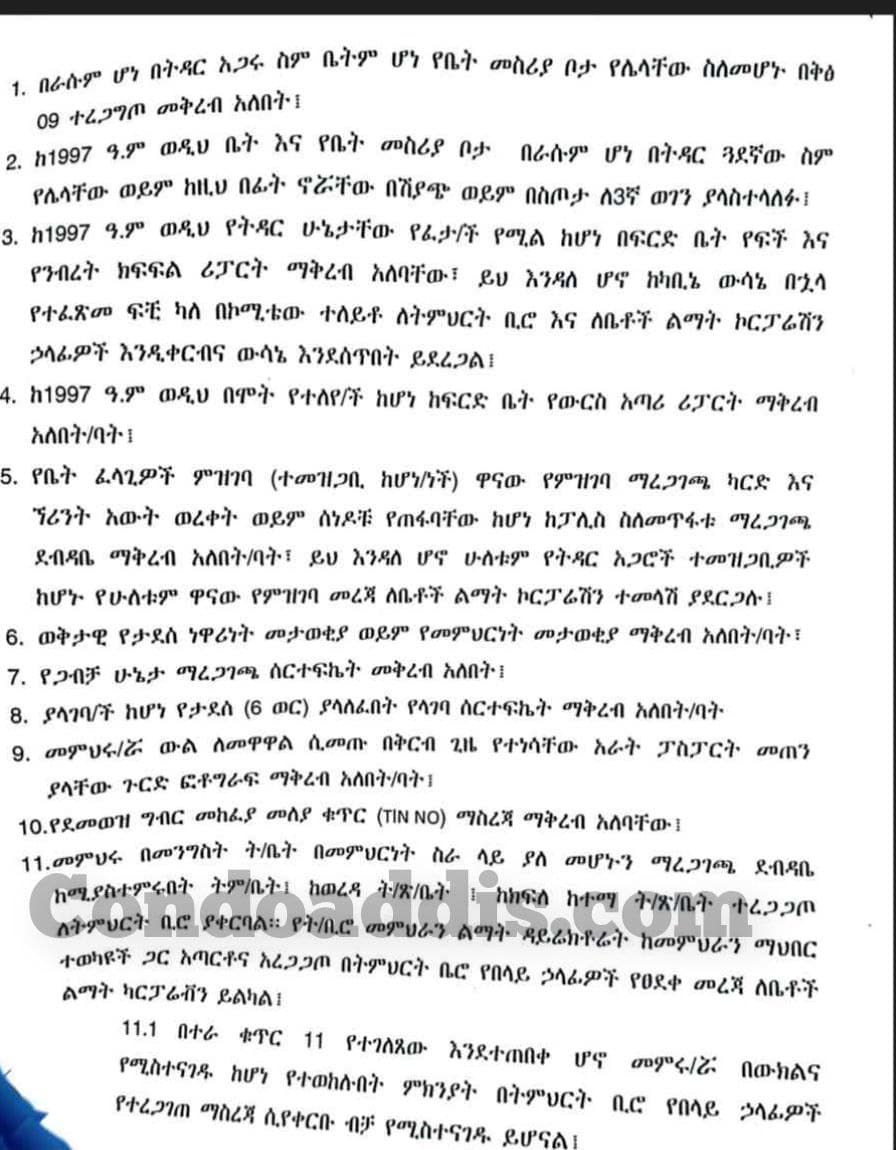 1. በራሱም ሆነ በትዳር አጋሩ ስም ቤትም ሆነ የቤት መስሪያ ቦታ የሌላቸው ስለመሆኑ በቅፅ
09 ተረጋግጦ መቅረብ አለበት፤
2. ከ1997 ዓ.ም ወዲህ ቤት እና የቤት መስሪያ ቦታ በራሱም ሆነ በትዳር ጓደኛው ስም
የሌላቸው ወይም ከዚህ በፊት ኖሯቸው በሽያጭ ወይም በስጦታ ለ3ኛ ወገን ያላስተላለፉ፤
3. ከ1997 ዓ.ም ወዲህ የትዳር ሁኔታቸው የፈታ/ች የሚል ከሆነ በፍርድ ቤት የፍች እና
የንብረት ክፍፍል ሪፓርት ማቅረብ አለባቸው፣ ይህ እንዳለ ሆኖ ከካቢኔ ውሳኔ በኋላ
የተፈጽመ ፍቺ ካለ በኮሚቴው ተለይቶ ለትምህርት ቢሮ እና ለቤቶች ልማት ኮርፓሬሽን
ኃላፊዎች እንዲቀርብና ውሳኔ እንደሰጥበት ይደረጋል፤
4. ከ1997 ዓ.ም ወዲህ በሞት የተለየ/ች ከሆነ ከፍርድ ቤት የውርስ አጣሪ ሪፓርት ማቅረብ
አለበት/ባት፤
5. የቤት ፈላጊዎች ምዝገባ (ተመዝጋቢ ከሆነ/ነች) ዋናው የምዝገባ ማረጋገጫ ካርድ እና
ኘሪንት አውት ወረቀት ወይም ሰነዶቹ የጠፋባቸው ከሆነ ከፓሊስ ስለመጥፋቱ ማረጋገጫ
ደብዳቤ ማቅረብ አለበት/ባት፣ ይህ እንዳለ ሆኖ ሁለቱም የትዳር አጋሮች ተመዝጋቢዎች
ከሆኑ የሁለቱም ዋናው የምዝገባ መረጃ ለቤቶች ልማት ኮርፓሬሽን ተመላሽ ያደርጋሉ፤
6. ወቅታዊ የታደሰ ነዋሪነት መታወቂያ ወይም የመምህርነት መታወቂያ ማቅረብ አለበት/ባት፣
7. የጋብቻ ሁኔታ ማረጋገጫ ሰርተፍኬት መቅረብ አለበት፤
8. ያላገባ/ች ከሆነ የታደሰ (6 ወር) ያላለፈበት የላገባ ሰርተፍኬት ማቅረብ አለበት/ባት
9. መምህሩ/ሯ ውል ለመዋዋል ሲመጡ በቅርብ ጊዜ የተነሳቸው አራት ፓስፓርት መጠን
ያላቸው ጉርድ ፎቶግራፍ ማቅረብ አለበት/ባት፤
10.የደመወዝ ግብር መከፈያ መለያ ቁጥር (TIN NO) ማስረጃ ማቅረብ አለባቸው፤
11.መምህሩ በመንግስት ት/ቤት በመምህርነት ስራ ላይ ያለ መሆኑን ማረጋገጫ ደብዳቤ
ከሚያስተምሩበት ትም/ቤት፤ ከወረዳ ት/ጽ/ቤት ፤ ከክፍለ ከተማ ት/ጽ/ቤት ተረጋጋጦ
ለትምህርት ቢሮ ያቀርባል። የት/ቢሮ መምህራን ልማት ዳይሬክቶሬት ከመምህራን ማህበር
ተወካዩች ጋር አጣርቶና አረጋጋጦ በትምህርት ቤሮ የበላይ ኃላፊዎች የፀደቀ መረጃ ለቤቶች
ልማት ካርፓሬቭን ይልካል፤
11.1 በተራ ቁጥር 11 የተገለጸው እንደተጠበቀ ሆኖ መምሩ/ሯ በውክልና
የሚስተናገዱ ከሆነ የተወከሉበት ምክንያት በትምህርት ቢሮ የበላይ ኃላፊዎች
የተረጋገጠ ማስረጃ ሲየቀርቡ ብቻ የሚስተናገዱ ይሆናል፤
Condoaddis.com